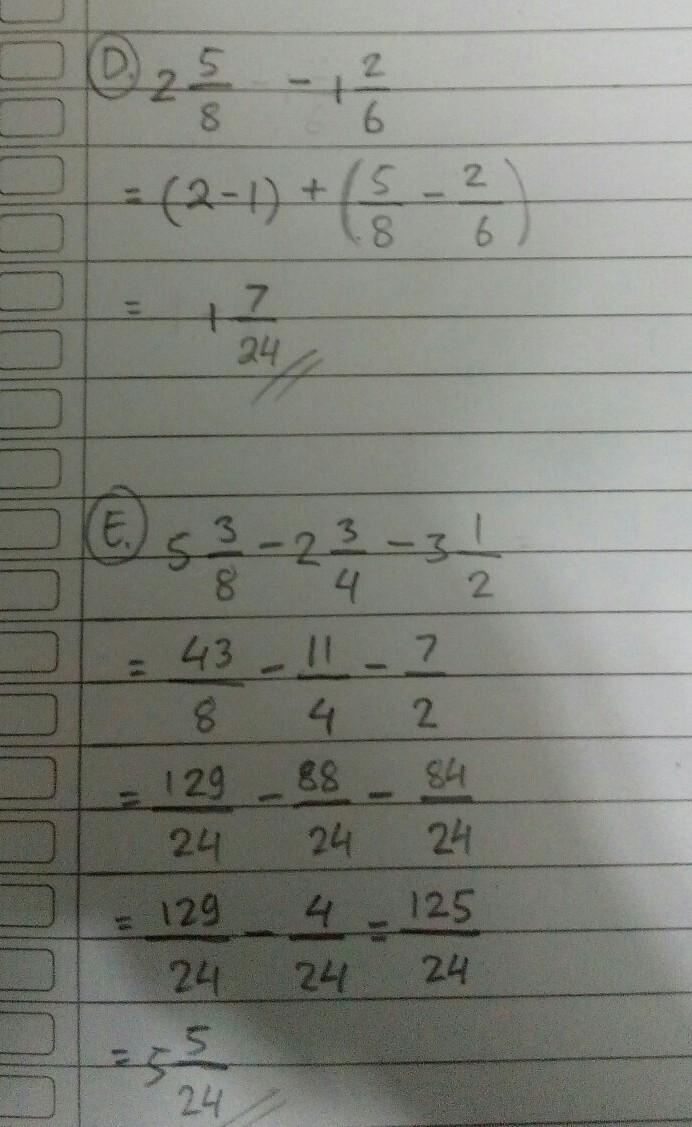 D. 2 5/8 - 1 2/6
= (2-1) + (5/8 - 2/6)
= 1 7/24
E. 5 3/8 - 2 3/4 - 3 1/2
= 43/8 - 11/4 - 7/2
= 129/24 - 88/24 - 84/24
= 129/24 - 4/24 = 125/24
= 5 5/24